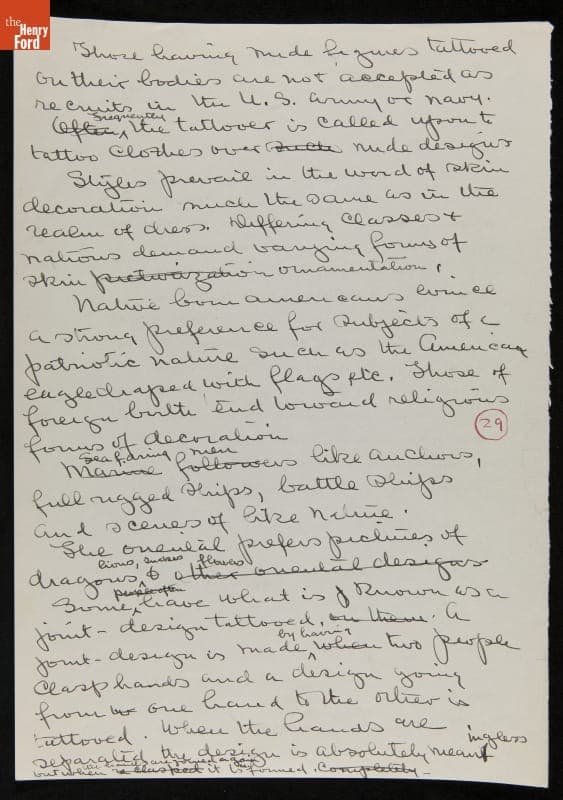 the
Henry
Ford
Those having nude figures tattooed
on their bodies are not accepted as
recruits in the U.S. army or navy.
frequently
Often the tattooer is called upon to
tattoo clothes over such nude designs
Styles prevail in the word of skin
decoration much the same as in the
realm of dress. Differing classes +
nations demand varying forms of
skin picturization ornamentation.
Native born americans evince
a strong preference for subjects of a
patriotic nature such as the American
eagle draped with flags etc. Those of
foreign birth tend toward religious
29
forms of decoration
Seafaring men
Marine followers like anchors,
full rigged ships, battle ships
and scenes of like nature.
The oriental prefers pictures of
lions, snakes flowers
dragons & other oriental designs
people often
Some have what is known as a
joint-design tattooed, on them. A
by having
joint-design is made when two people
clasp hands and a design going
from one hand to the other is
tattooed. When the hands are
ingless
separated the design is absolutely mean
the hands are joined again
but when reclasped it is formed. completely-